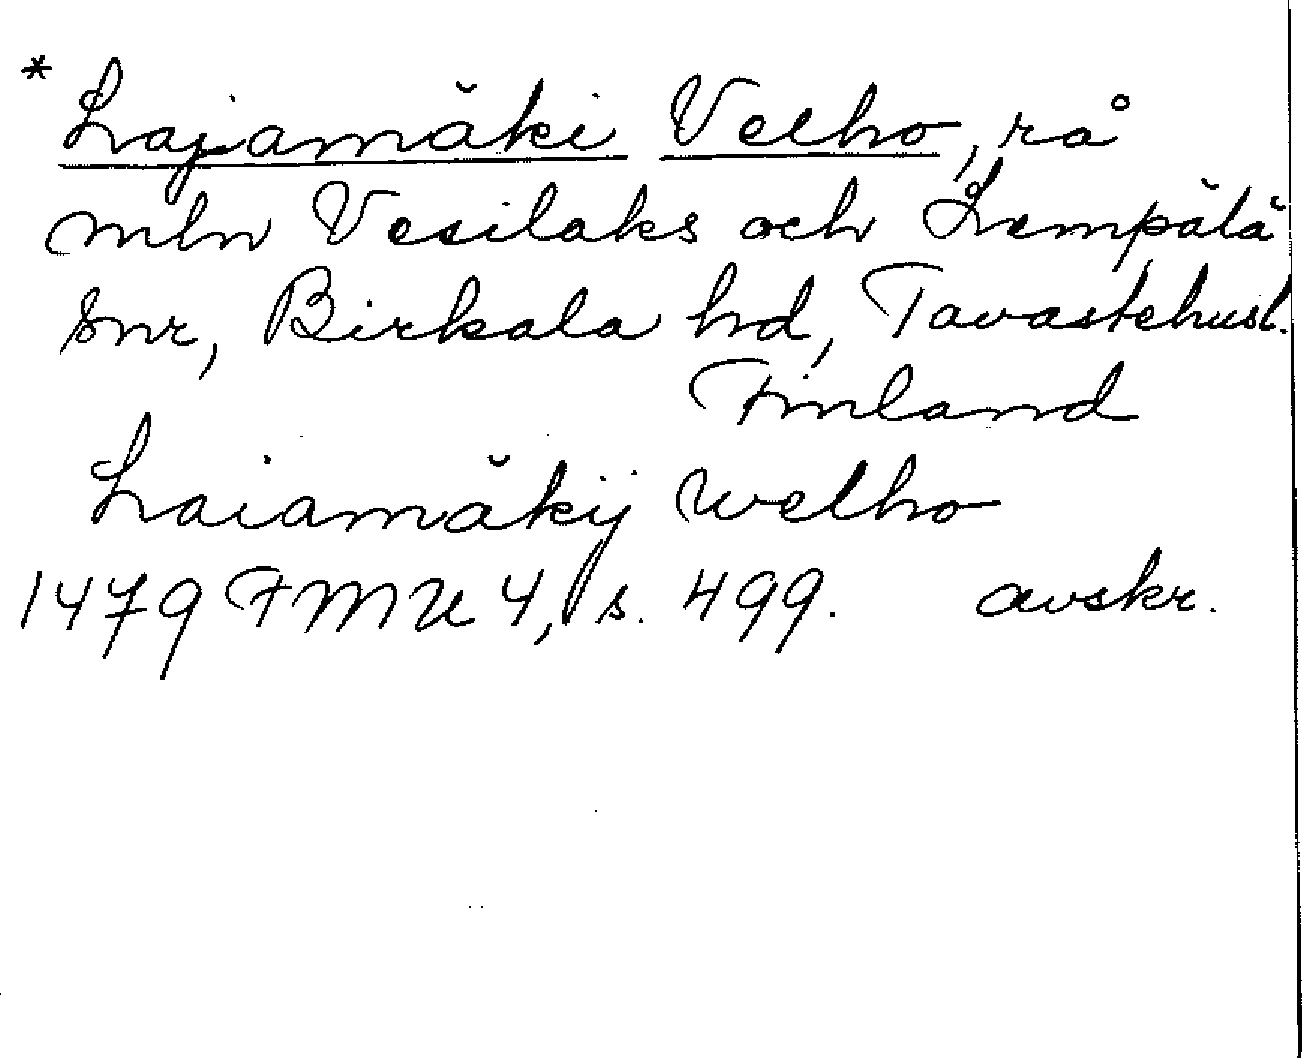 * Lajamäki Velho, rå
mln Vesilaks och Lempälä
snr, Birkala hd, Tavastehusl.
Finland
Laiamäkij welho
1479 FMU 4, s. 499. avskr.